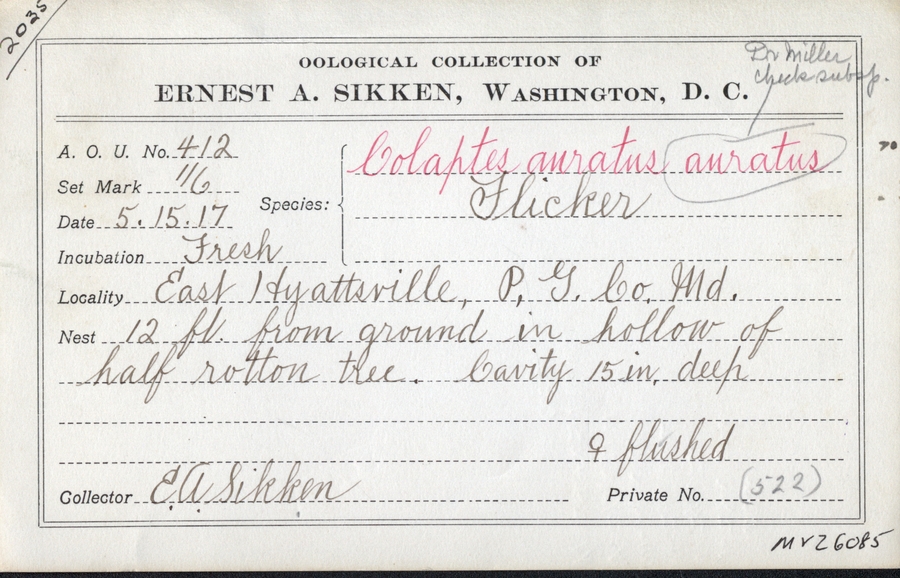 2035
OOLOGICAL COLLECTION OF
ERNEST A. SIKKEN, WASHINGTON, D. C.
Dr Miller
check subsp.
A. O. U. No. 412
Set Mark 1/6
Date 5.15.17
Incubation Fresh
Species: Colaptes auratus auratus
Flicker
Locality East Hyattsville, P. G. Co. Md.
Nest 12 ft. from ground in hollow of
half rotton tree. Cavity 15 in. deep
♀ flushed
Collector E.A. Sikken
Private No. (522)
MVZ6085